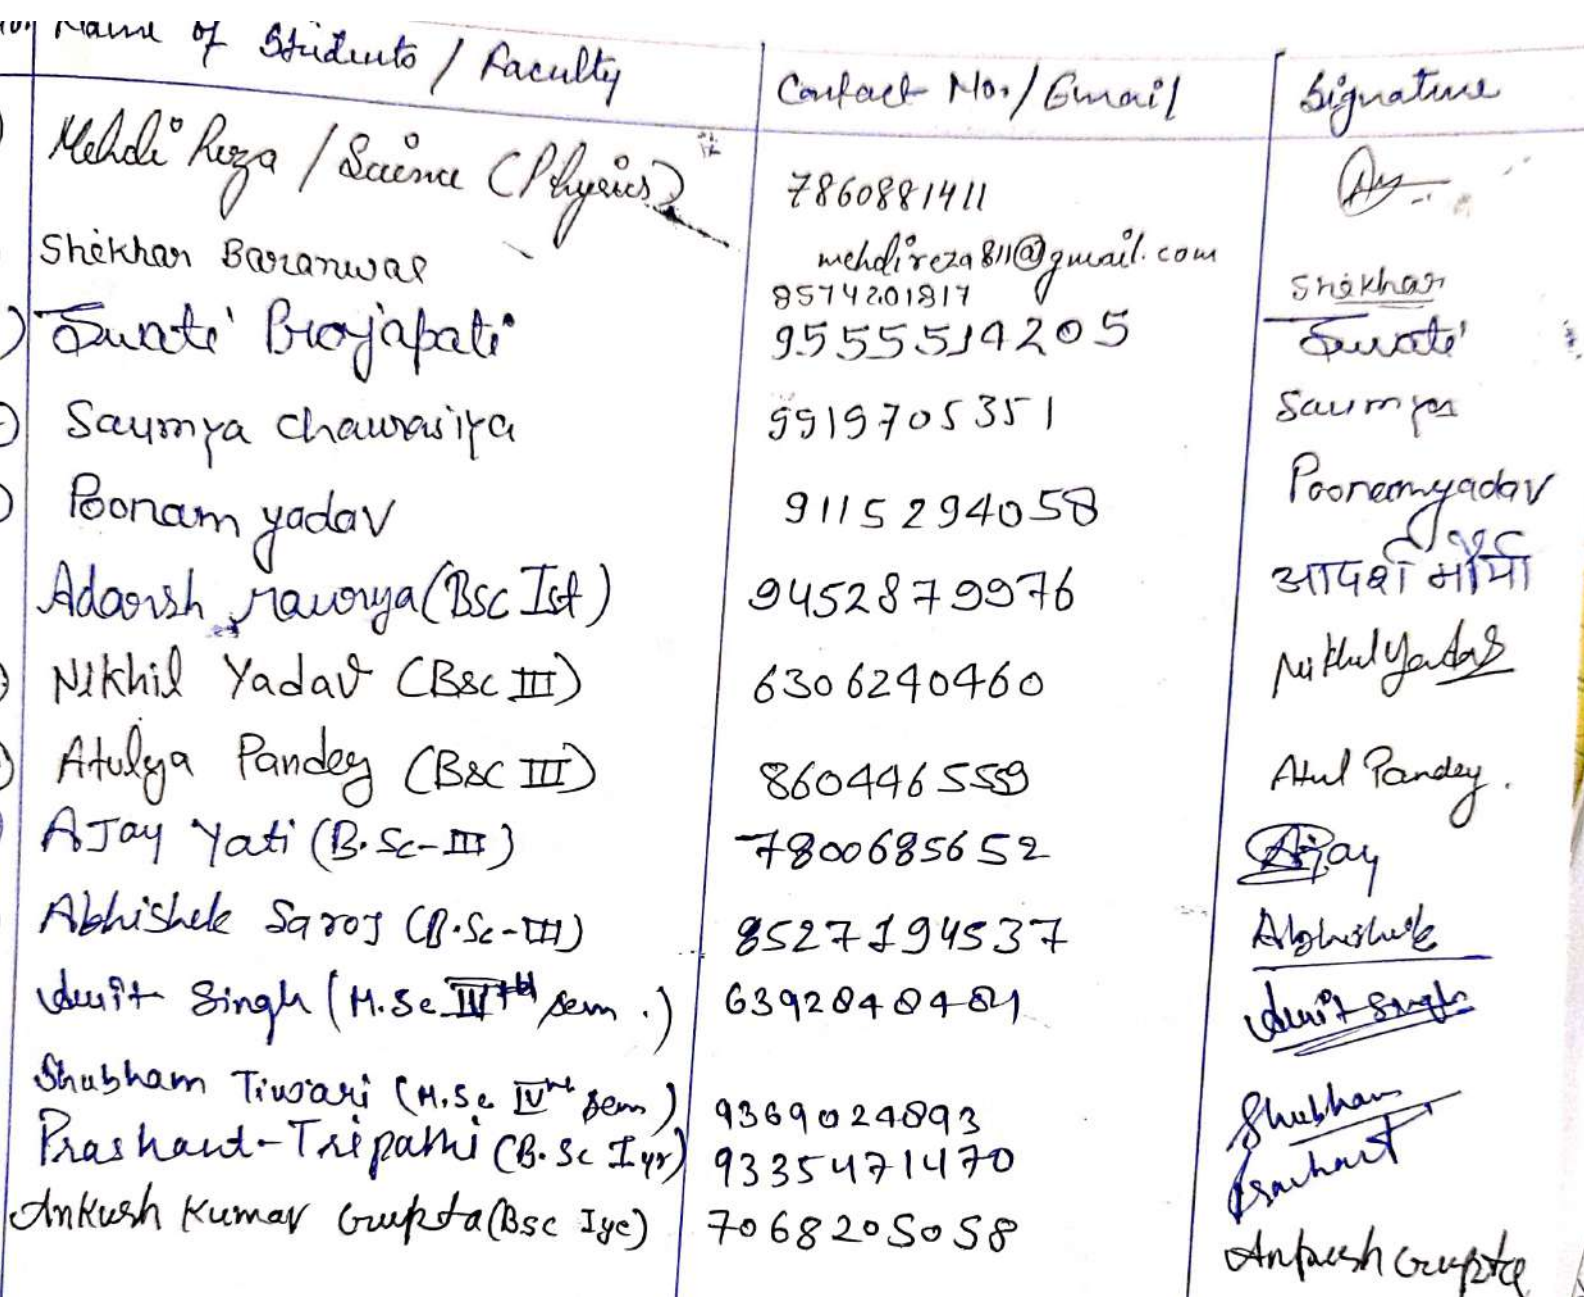 Name of Students / Faculty Contact No. / Gmail Signature
Mehdi Reza / Science (Physics) 7860881411
mehdireza811@gmail.com
Shekhar Baranwal 8574201817 Shekhar
Swati Prajapati 9555514205 Swati
Saumya Chaurasiya 9919705351 Saumya
Poonam yadav 9115294058 Poonamyadav
Adarsh maurya (Bsc Ist) 9452879976 आदर्श मौर्या
Nikhil Yadav (BSc III) 6306240460 Nikhil Yadav
Atulya Pandey (BSc III) 860446559 Atul Pandey.
AJay Yati (B.Sc-III) 7800685652 Ajay
Abhishek Saroj (B.Sc-III) 8527194537 Abhishek
Amit Singh (M.Sc IVth sem.) 6392848481 Amit Singh
Shubham Tiwari (M.Sc IVth sem) 9369024893 Shubham
Prashant Tripathi (B.Sc I yr) 9335471470 Prashant
Ankush Kumar Gupta (Bsc Iye) 7068205058 Ankush Gupta